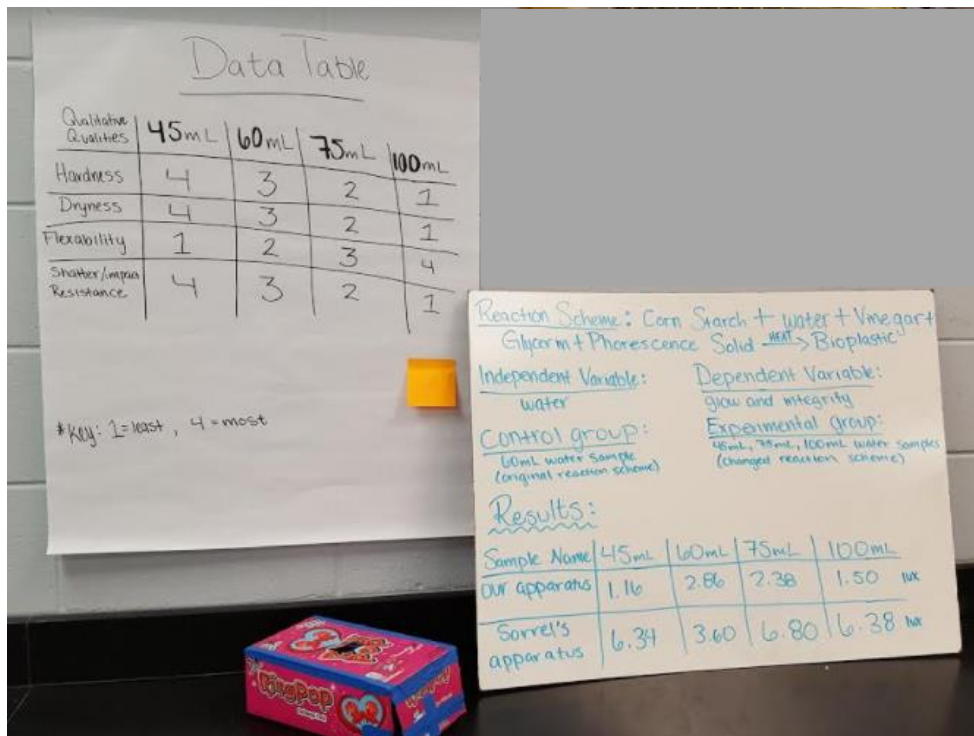 Data Table
Qualitative
Qualities 45mL 60mL 75mL 100mL
Hardness 4 3 2 1
Dryness 4 3 2 1
Flexability 1 2 3 4
Shatter/impact
Resistance 4 3 2 1
*Key: 1=least, 4=most
Reaction Scheme: Corn Starch + water + Vinegar +
Glycerin + Phorescence Solid HEAT> Bioplastic
Independent Variable:
water
Dependent Variable:
glow and integrity
Control group:
60mL water sample
(original reaction scheme)
Experimental group:
45mL, 75mL, 100mL water samples
(changed reaction scheme)
Results:
Sample Name 45mL 60mL 75mL 100mL
our apparatus 1.16 2.86 2.38 1.50 lux
Sorrel's
apparatus 6.34 3.60 6.80 6.38 lux
RingPop
RingPop